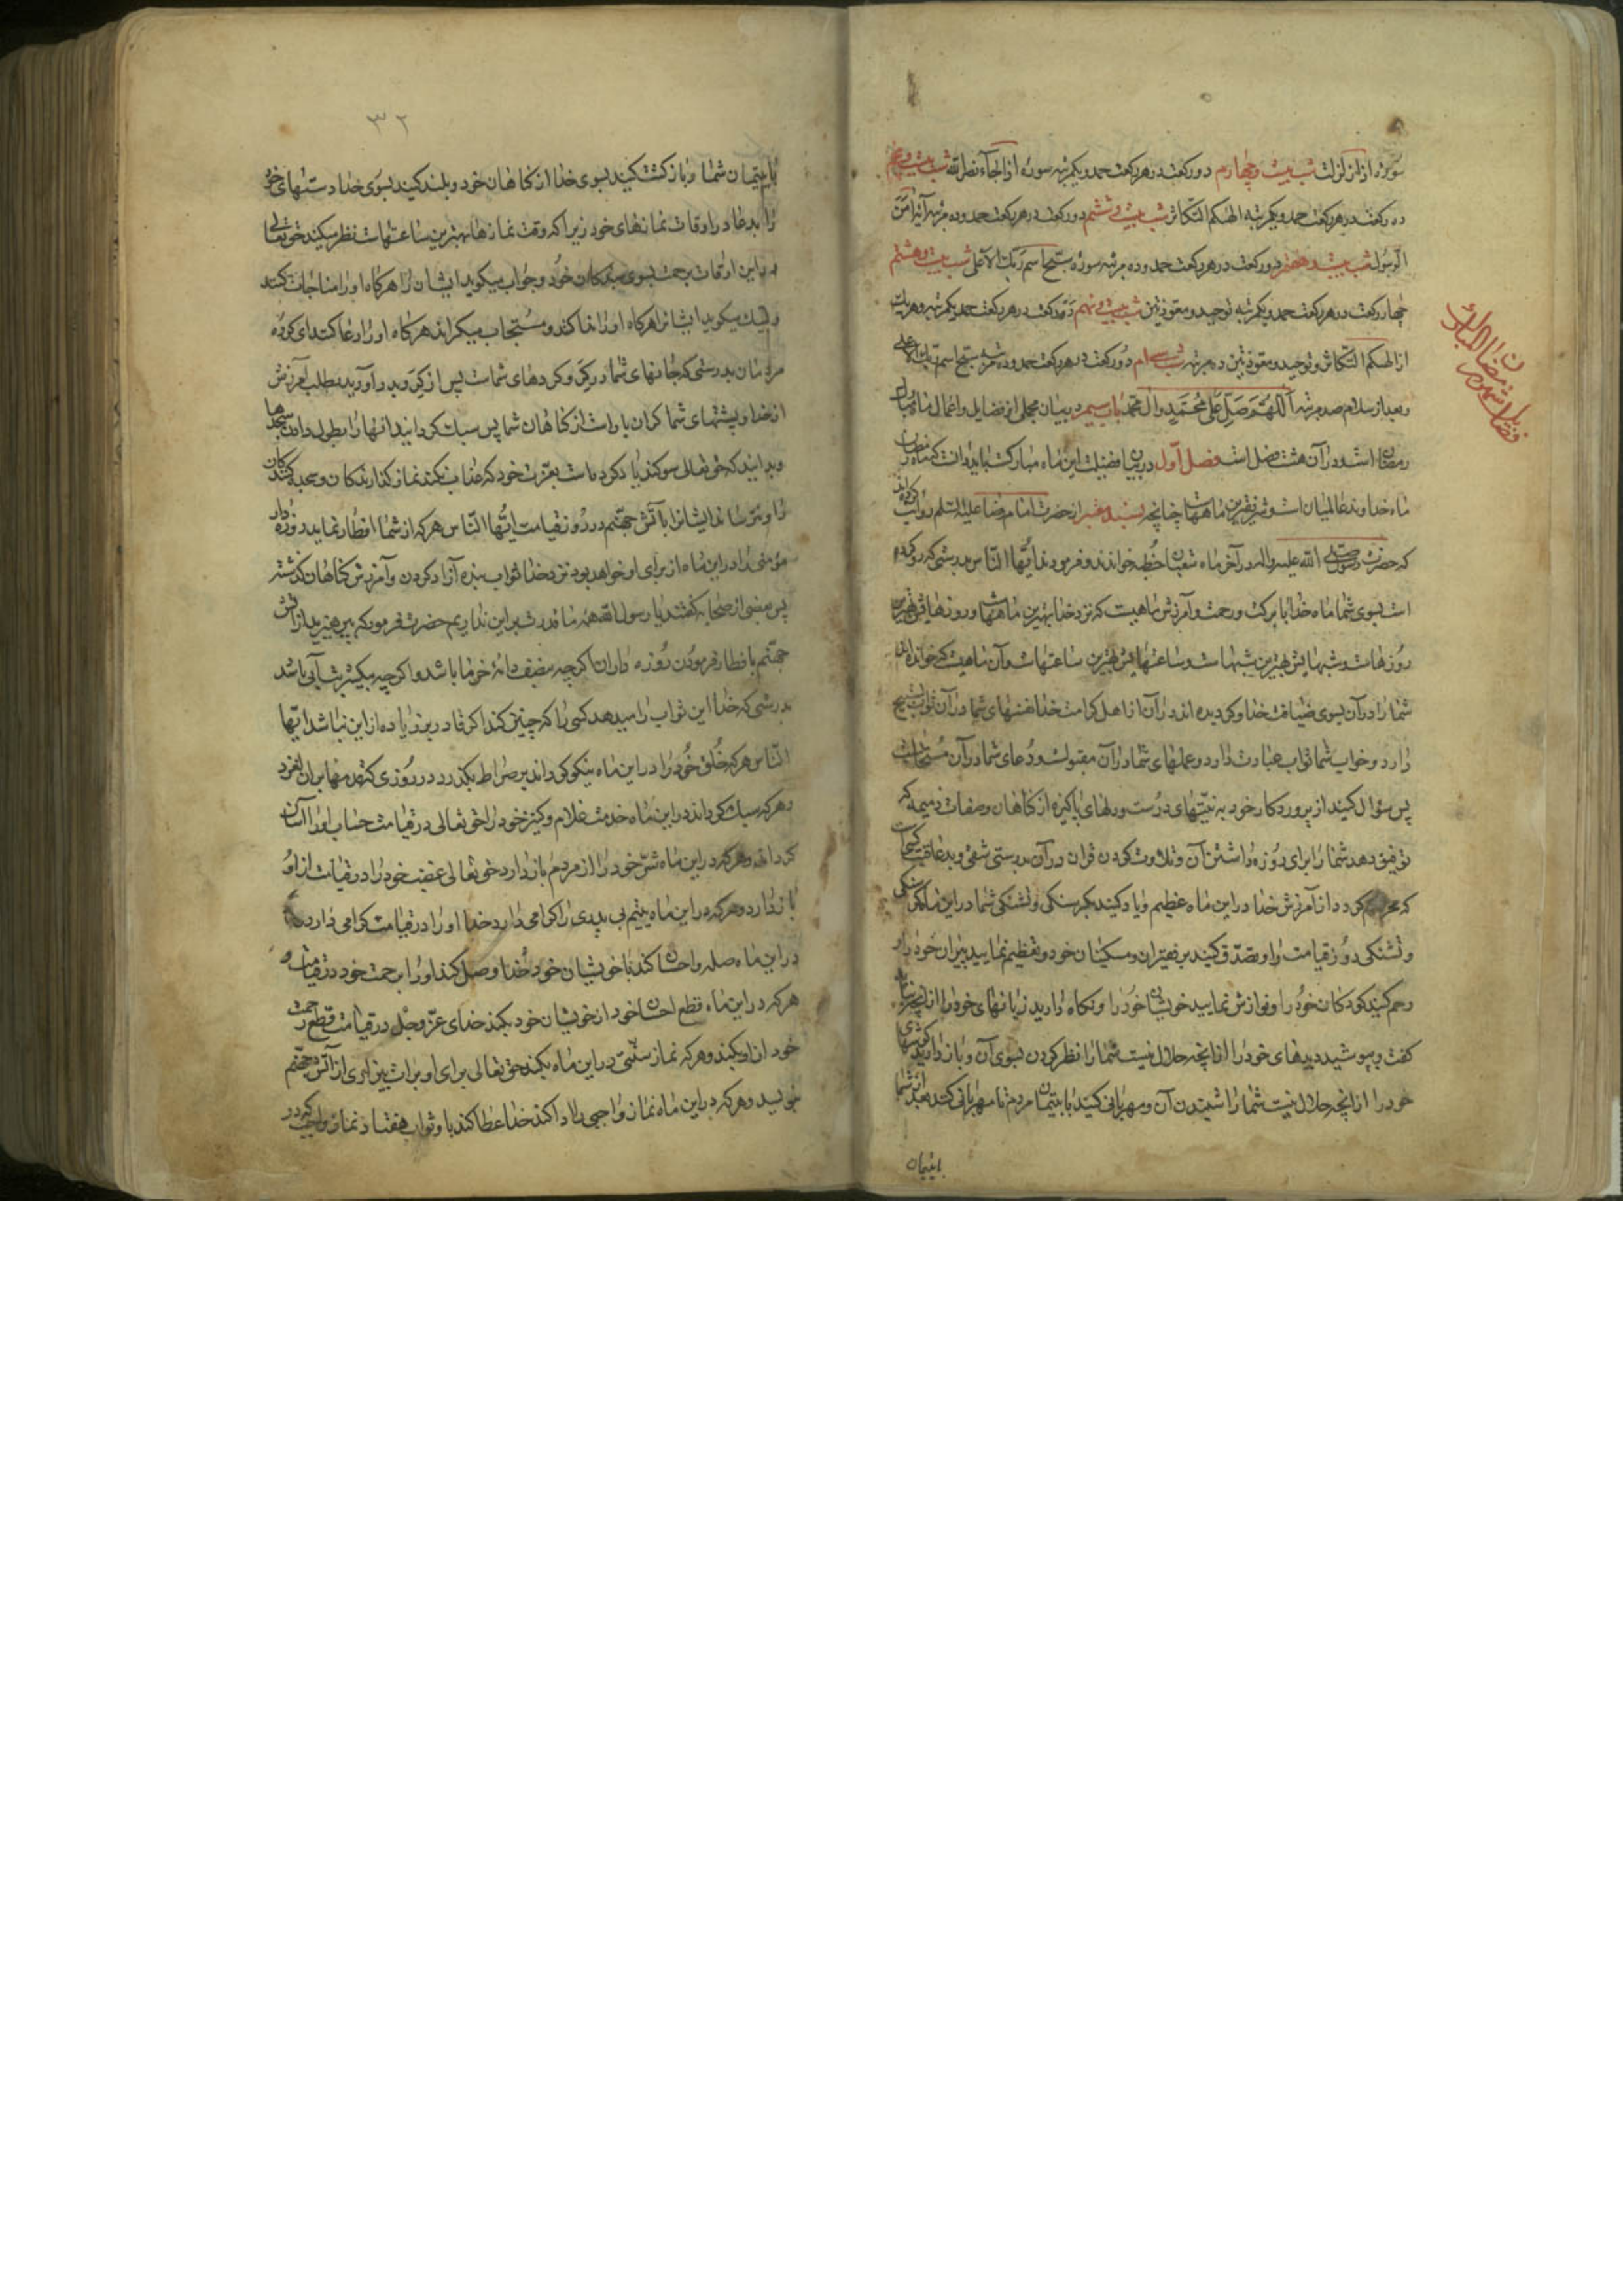 سوره اذا زلزلت شب بیست و چهارم دو رکعت در هر رکعت حمد و یکمرتبه سوره اذا جآء نصر الله شب بیست و پنجم
ده رکعت در هر رکعت حمد و یکمرتبه الهیکم التکاثر شب بیست و ششم دو رکعت در هر رکعت حمد و ده مرتبه آیه امن
الرسول شب بیست و هفتم دو رکعت در هر رکعت حمد و ده مرتبه سوره سبح اسم ربک الاعلی شب بیست و هشتم
چهار رکعت در هر رکعت حمد و یکمرتبه توحید و معوذتین شب بیست و نهم ده رکعت در هر رکعت حمد و یکمرتبه و هر یک
از الهیکم التکاثر و توحید و معوذتین ده مرتبه شب سی ام دو رکعت در هر رکعت حمد و ده مرتبه سبح اسم ربک الاعلی
و بعد از سلام صد مرتبه اللهم صل علی محمد و آل محمد باب سیم در بیان مجملی از فضایل و اعمال ماه مبارک
رمضان است و در آن هشت فضل است فصل اول در بیان فضیلت این ماه مبارکست بباید دانست که ماه رمضان
ماه خداوند عالمیان است و شریفترین ماههاست چنانچه بسند معتبر از حضرت امام رضا علیه السلم روایت کرده‌اند
که حضرت رسول صلی الله علیه و اله در آخر ماه شعبان خطبه خواندند و فرمودند ایها الناس بدرستی که رو کرده
است بسوی شما ماه خدا با برکت و رحمت و آمرزش ماهیست که نزد خدا بهترین ماههاست و روزهایش بهترین
روزهاست و شبهایش بهترین شبهاست و ساعتهایش بهترین ساعتهاست و آن ماهیست که خوانده‌اند
شما را در آن بسوی ضیافت خدا و گردیده اند در آن از اهل کرامت خدا نفسهای شما در آن ثواب تسبیح
دارد و خواب شما ثواب عبادت دارد و عملهای شما در آن مقبولست و دعای شما در آن مستجابست
پس سؤال کنید از پروردکار خود به نیتهای درست و دلهای پاکیزه از کناهان و صفات ذمیمه که
توفیق دهد شما را برای روزه داشتن آن و تلاوت کردن قران در آن بدرستی شقی و بد عاقبت کسی است
که محروم کردد از آمرزش خدا در این ماه عظیم و یاد کنید بکرسنکی و تشنکی شما در این ماه کرسنکی
و تشنکی روز قیامت را و تصدق کنید بر فقیران و مسکینان خود و تعظیم نمایید پیران خود را و
رحم کنید کودکان خود را و نوازش نمایید خویشان خود را و نکاه دارید زبانهای خود را از آنچه نباید
کفت و بپوشید دیدهای خود را از آنچه حلال نیست شما را نظر کردن بسوی آن و باز دارید کوشهای
خود را از آنچه حلال نیست شما را شنیدن آن و مهربانی کنید با یتیمان مردم تا مهربانی کنند بعد از شما
با یتیمان
فضایل شهر رمضان المبارک
۳۲
با یتیمان شما و بازکشت کنید بسوی خدا از کناهان خود و بلند کنید بسوی خدا دستهای خود
را بدعا در اوقات نمازهای خود زیرا که وقت نمازها بهترین ساعتهاست نظر میکند حق تعالی
در این اوقات برحمت بسوی بندکان خود و جواب میکوید ایشان را هرکاه او را مناجات کنند
و لبیک میکوید ایشان را هرکاه او را ندا کنند و مستجاب میکرداند هرکاه او را دعا کنند ای کروه
مردمان بدرستی که جانهای شما در کرو کردهای شماست پس از کرو بدر آورید بطلب آمرزش
از خدا و پشتهای شما کران بار است از کناهان شما پس سبک کردانید آنها را بطول دادن سجدها
و بدانید که حق تعالی سوکند یاد کرده است بعزت خود که عذاب نکند نماز کذارندکان و سجده کنندکان
را و نترساند ایشان را بآتش جهنم در روز قیامت ایها الناس هر که از شما افطار نماید روزه دار
مؤمنی را در این ماه از برای او خواهد بود نزد خدا ثواب بنده آزاد کردن و آمرزش کناهان کذشته
پس بعضی از صحابه کفتند یا رسول الله همه ما قدرت بر این نداریم حضرت فرمود که بپرهیزید از آتش
جهنم بافطار فرمودن روزه داران اکرچه بنصف دانهٔ خرما باشد و اکرچه بیکشربت آبی باشد
بدرستی که خدا این ثواب را میدهد کسی را که چنین کند اکر قادر بر زیاده از این نباشد ایها
الناس هر که خلق خود را در این ماه نیکو کرداند بر صراط بکذرد در روزی که قدمها بر آن لغزد
و هر که سبک کرداند در این ماه خدمت غلام و کنیز خود را حق تعالی در قیامت حساب او را آسان
کرداند و هر که در این ماه شر خود را از مردم باز دارد حق تعالی غضب خود را در قیامت از او
باز دارد و هر که در این ماه یتیم بی پدری را کرامی دارد خدا او را در قیامت کرامی دارد و هر که
در این ماه صله و احسان کند با خویشان خود خدا وصل کند او را برحمت خود در قیامت و
هر که در این ماه قطع احسان خود از خویشان خود بکند خدای عز و جل در قیامت قطع رحمت
خود از او بکند و هر که نماز سنتی در این ماه بکند حق تعالی برای او برات بیزاری از آتش جهنم
بنویسد و هر که در این ماه نماز واجبی را ادا کند خدا عطا کند باو ثواب هفتاد نماز واجب که در